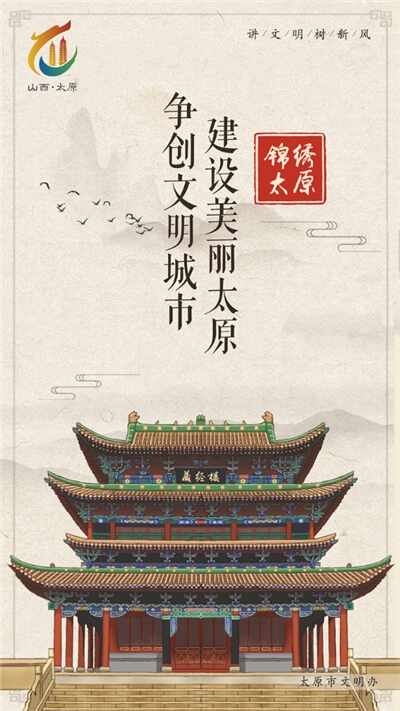 山西·太原
讲/文/明/树/新/风
建设美丽太原
争创文明城市
锦绣
太原
楼经藏
太原市文明办